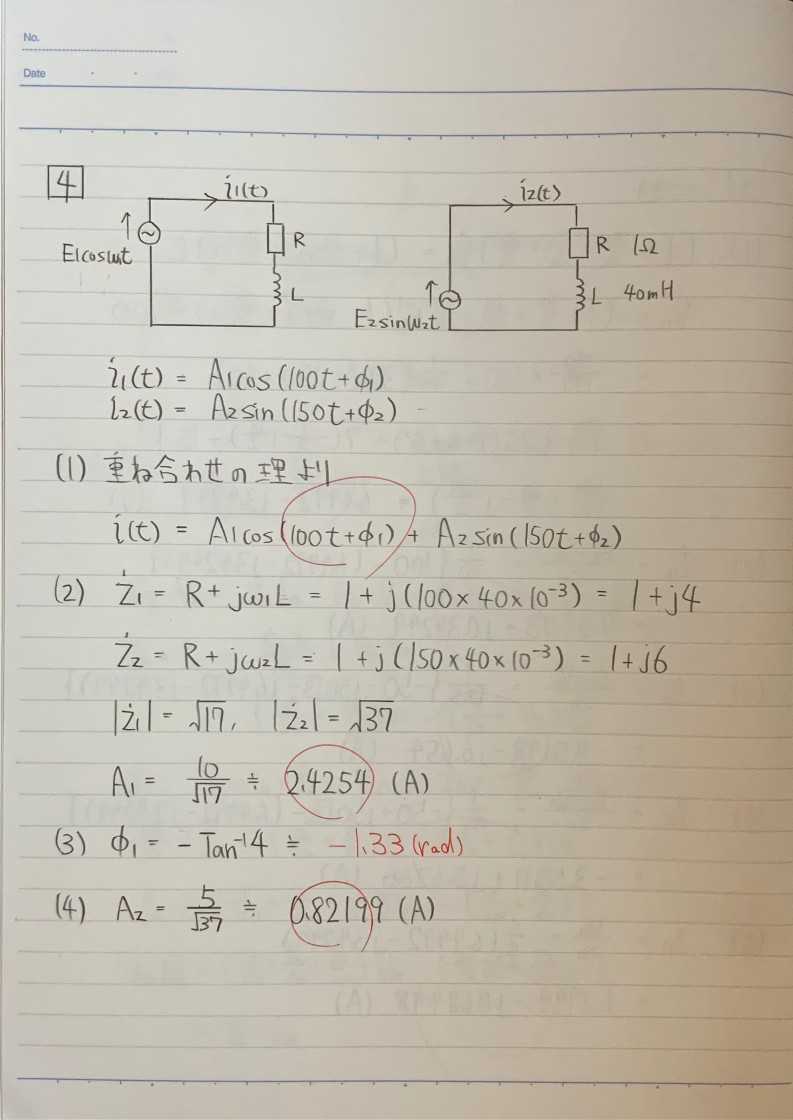 No.
Date
4
i1(t)
i2(t)
R
R 1Ω
L
L 40mH
E1cosω1t
E2sinω2t
i1(t) = A1cos(100t+φ1)
i2(t) = A2sin(150t+φ2)
(1) 重ね合わせの理より
i(t) = A1cos(100t+φ1) + A2sin(150t+φ2)
(2) Ż1 = R+jω1L = 1+j(100×40×10⁻³) = 1+j4
Ż2 = R+jω2L = 1+j(150×40×10⁻³) = 1+j6
|Ż1| = √17, |Ż2| = √37
A1 = 10/√17 ≒ 2.4254 (A)
(3) φ1 = -Tan⁻¹4 ≒ -1.33 (rad)
(4) A2 = 5/√37 ≒ 0.82199 (A)